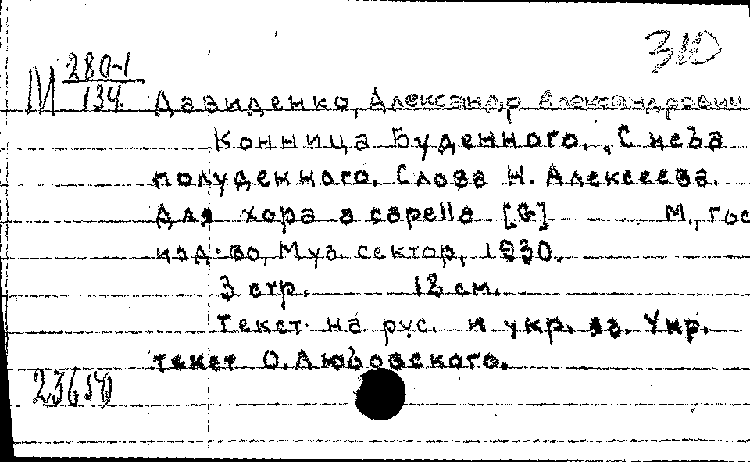 310
М 280-1
134
Давиденко, Александр Александрович
Конница Буденного. „С неба
полуденного. Слова Н. Алексеева.
Для хора a capella [G] М., Гос
изд-во, Муз. сектор, 1930.
3 стр. 18 см.
Текст на рус. и укр. яз. Укр.
текст О. Любовского.